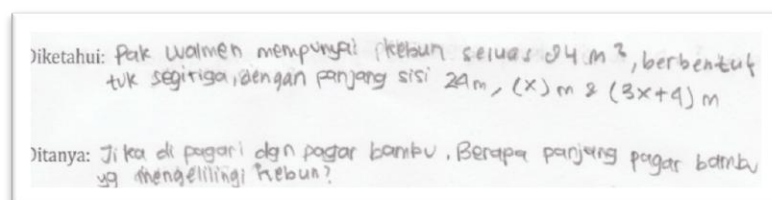 Diketahui: Pak Walmen mempunyai kebun seluas 84 m², berbentuk
tuk segitiga, dengan panjang sisi 24 m, (x) m & (3x+4) m
Ditanya: Jika di pagari dgn pagar bambu, Berapa panjang pagar bambu
yg mengelilingi kebun?